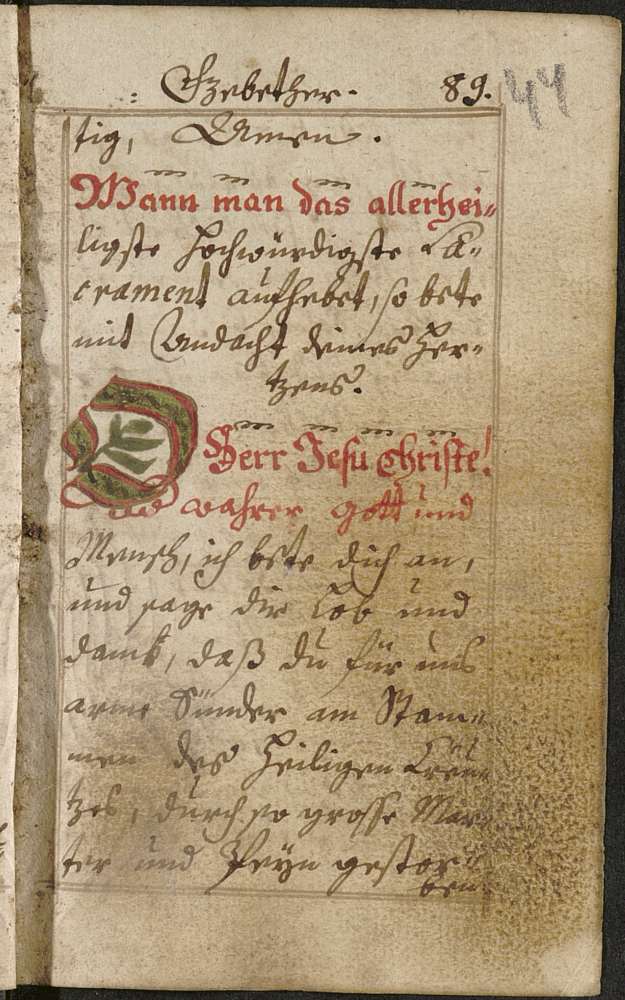 : Gebether. 89. 44
tig, Amen.
Wann man das allerhei=
ligste hochwürdigste Sa=
crament aufhebet, so bete
mit Andacht deines Her=
tzens.
O Herr Jesu Christe!
wahrer gott und
Mensch, ich bete dich an,
und sage dir Lob und
danck, daß du für uns
arme Sünder am Stam=
men des heiligen Creu=
tzes, durch so grosse Mar=
ter und Peyn gestor=
ben